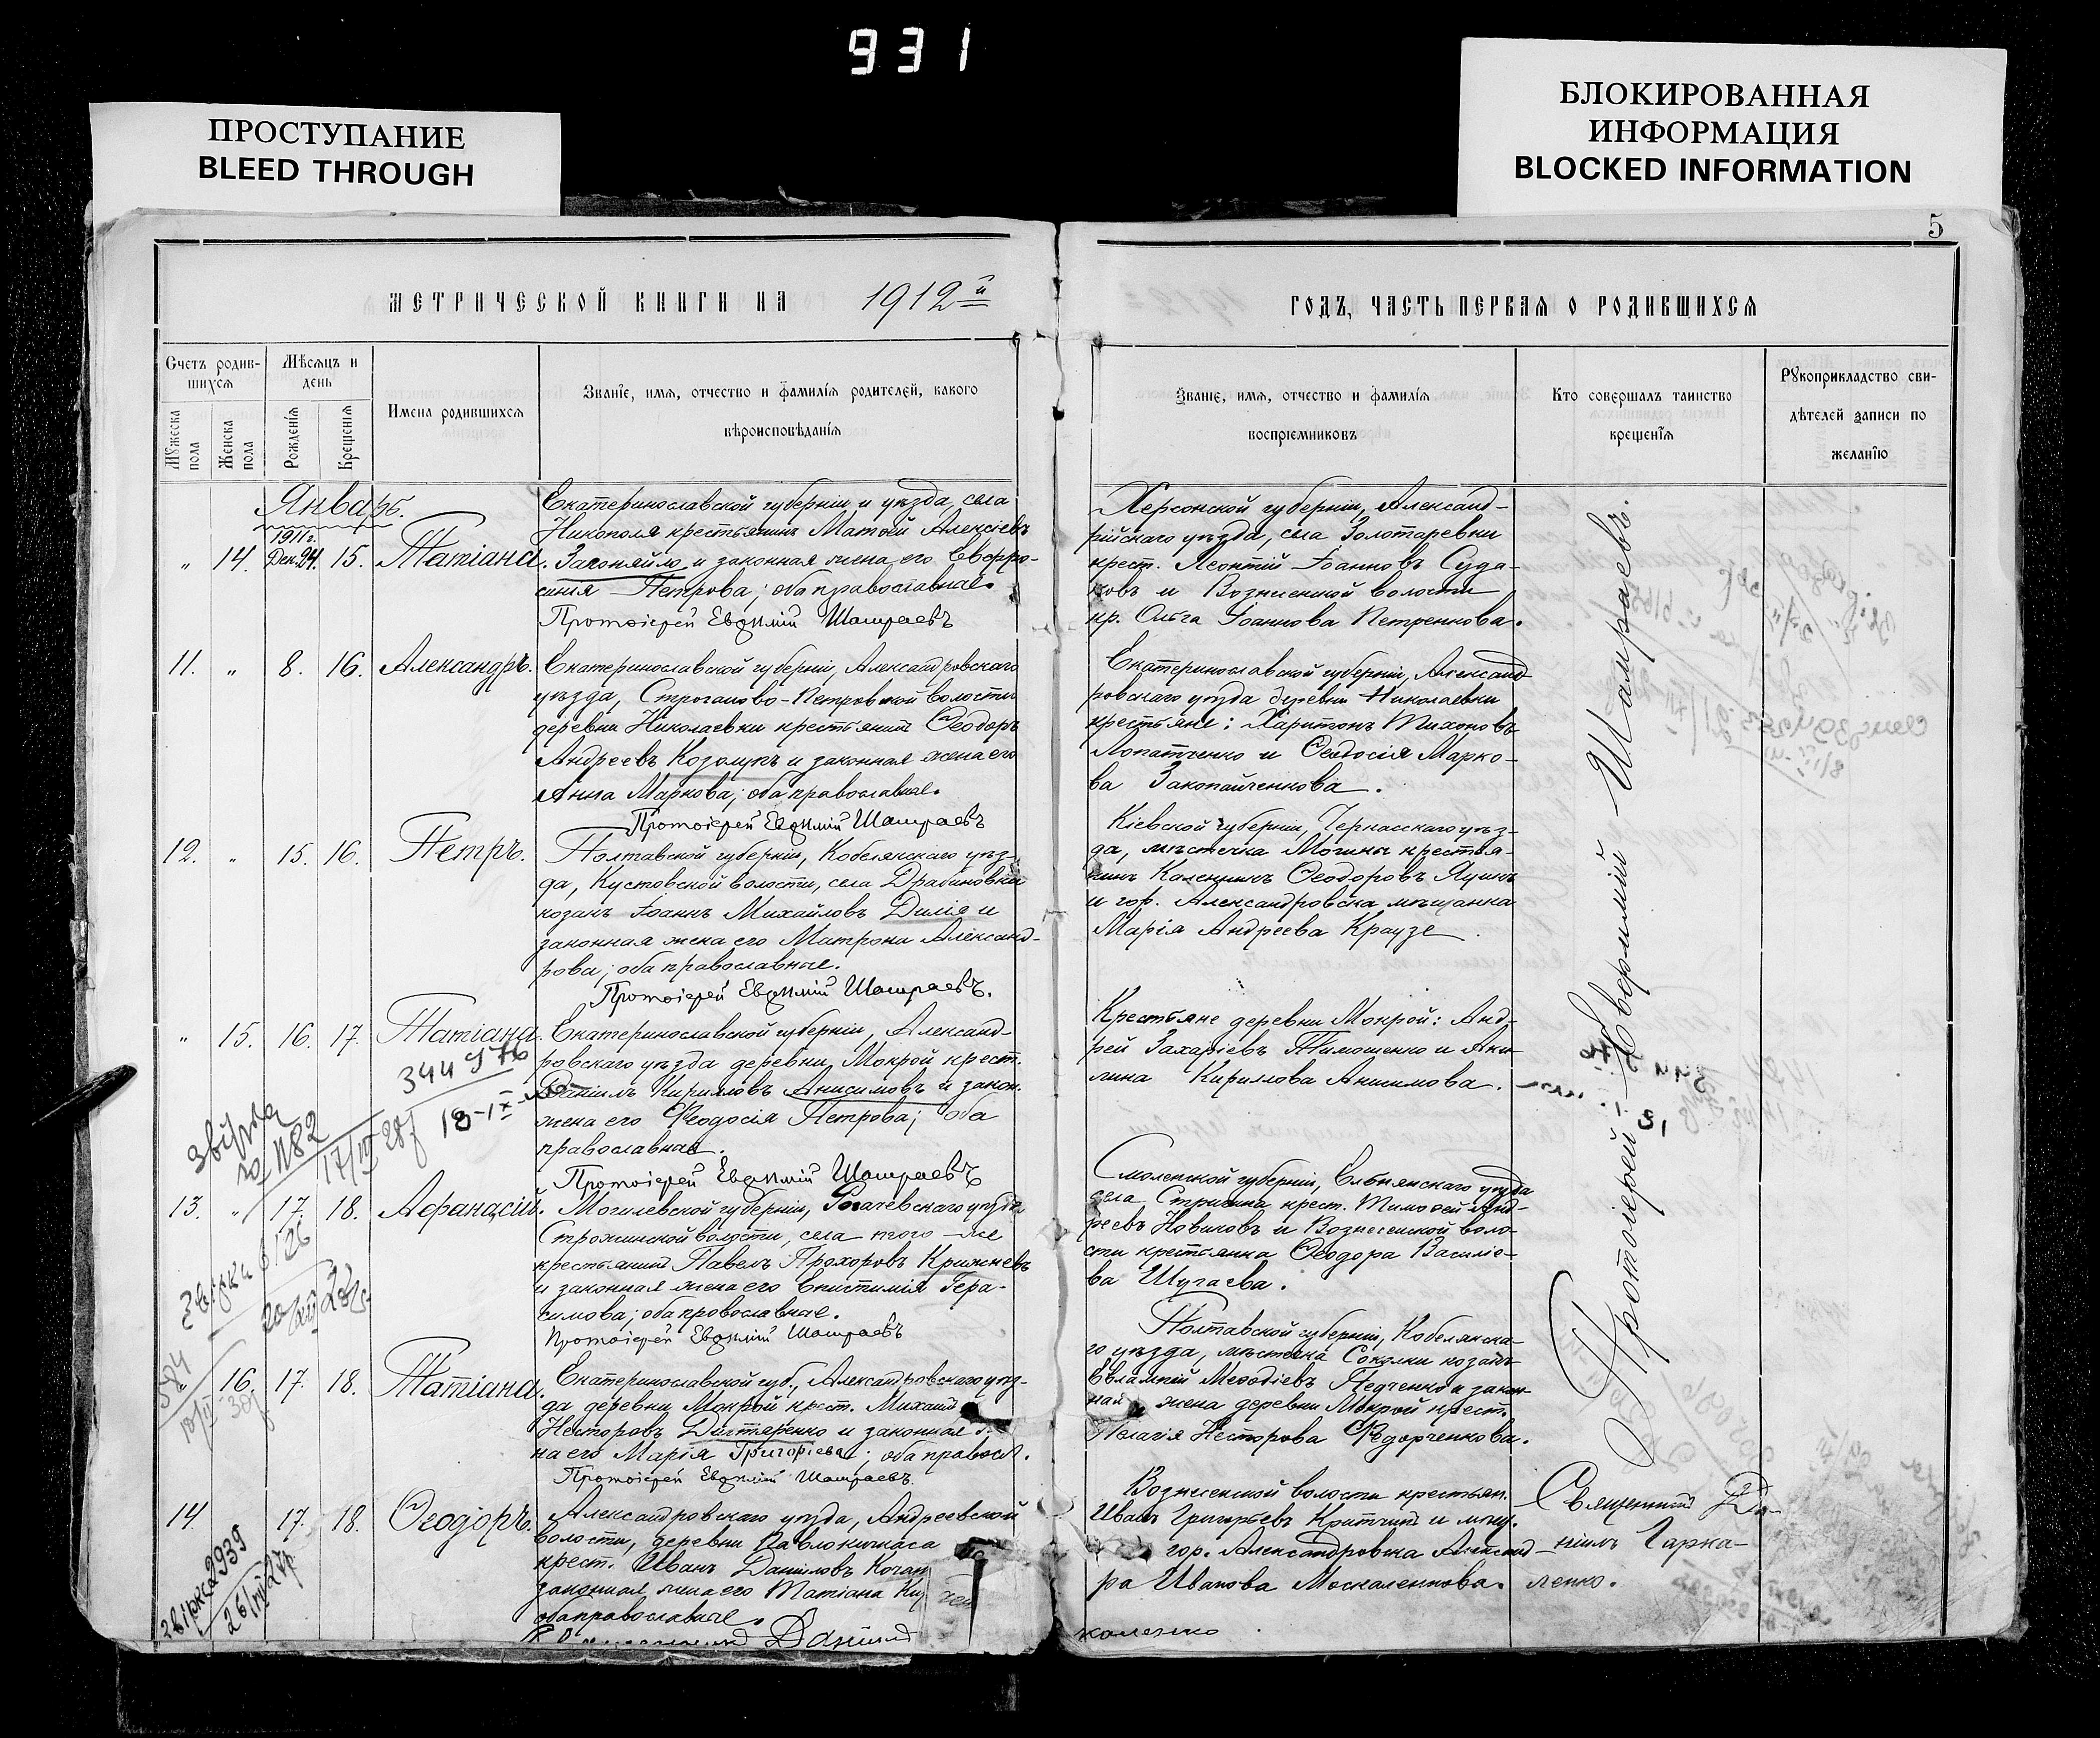 931
ПРОСТУПАНИЕ
BLEED THROUGH
БЛОКИРОВАННАЯ
ИНФОРМАЦИЯ
BLOCKED INFORMATION
5
МЕТРИЧЕСКОЙ КНИГИ НА 1912й
ГОДЪ, ЧАСТЬ ПЕРВАЯ О РОДИВШИХСЯ
Счетъ родив-
шихся
Мужеска пола
Женска пола
Мѣсяцъ и
день
Рожденія
Крещенія
Имена родившихся
Званіе, имя, отчество и фамилія родителей, какого
вѣроисповѣданія
Званіе, имя, отчество и фамилія
воспріемниковъ
Кто совершалъ таинство
крещенія
Рукоприкладство сви-
дѣтелей записи по
желанію
Январь.
1911 г.
" 14. Дек. 24. 15. Татіана.
Екатеринославской губерніи и уѣзда, села
Никополя крестьянинъ Матѳей Алексѣевъ
и законная жена его Евфро-
синія Петрова; оба православные.
Протоіерей Евѳимій Шамраевъ
Херсонской губерніи, Александ-
рійскаго уѣзда, села Золотаревки
крест. Леонтій Іоанновъ Суда-
ковъ и Вознесенской волости
кр. Ольга Іоаннова Петренкова.
11. " 8. 16. Александръ.
Екатеринославской губерніи, Александровскаго
уѣзда, Строганово-Петровской волости
деревни Николаевки крестьянинъ Ѳеодоръ
Андреевъ Козолупъ и законная жена его
Анна Маркова; оба православные.
Протоіерей Евѳимій Шамраевъ
Екатеринославской губерніи, Александ-
ровскаго уѣзда деревни Николаевки
крестьяне: Харитонъ Тихоновъ
Лопатченко и Ѳеодосія Марко-
ва Закопайченкова.
12. " 15. 16. Петръ.
Полтавской губерніи, Кобелянскаго уѣз-
да, Кустовской волости, села Драбиновки
козакъ Іоаннъ Михайловъ Дилія и
законная жена его Матрона Александ-
рова; оба православные.
Протоіерей Евѳимій Шамраевъ.
Кіевской губерніи, Черкасскаго уѣз-
да, мѣстечка крестья-
нинъ Ѳеодоровъ
и гор. Александровска мѣщанка
Марія Андреева Краузе.
" 15. 16. 17. Татіана.
Екатеринославской губерніи, Александ-
ровскаго уѣзда деревни Мокрой крест.
Даніилъ Кирилловъ Анисимовъ и закон.
жена его Ѳеодосія Петрова; оба
православные.
Протоіерей Евѳимій Шамраевъ
Крестьяне деревни Мокрой: Анд-
рей Захаріевъ Тимошенко и Аки-
лина Кириллова Анисимова.
13. " 17. 18. Аѳанасій.
Могилевской губерніи, Рогачевскаго уѣзда
волости, села того-же
крестьянинъ Павелъ Прохоровъ Крижневъ
и законная жена его Гера-
симова; оба православные.
Протоіерей Евѳимій Шамраевъ
Смоленской губерніи, Ельнянскаго уѣзда
села крест. Тимоѳей Анд-
реевъ Новиковъ и Вознесенской воло-
сти крестьянка Ѳеодора Василіе-
ва Шугаева.
16. 17. 18. Татіана.
Екатеринославской губ., Александровскаго уѣз-
да деревни Мокрой крест. Михаилъ
Несторовъ Дигтяренко и законная
на его Марія Григоріева; оба правосл.
Протоіерей Евѳимій Шамраевъ.
Полтавской губерніи, Кобелянска-
го уѣзда, мѣстечка Соколки козакъ
Евлампій Меѳодіевъ Педченко и
жена деревни Мокрой крест.
Пелагія Несторова Ѳедорченкова.
14. 17. 18. Ѳеодоръ.
Александровскаго уѣзда, Андреевской
волости, деревни Павлокичкаса
крест. Иванъ Даниловъ
законная жена его Татіана
оба православные.
Даніилъ
Вознесенской волости крестьян.
Иванъ Григорьевъ и мѣщ.
гор. Александровска Александ-
ра Иванова Москаленкова.
Протоіерей Евѳимій Шамраевъ.
Священникъ Да-
ніилъ Гарка-
ленко.
каленко